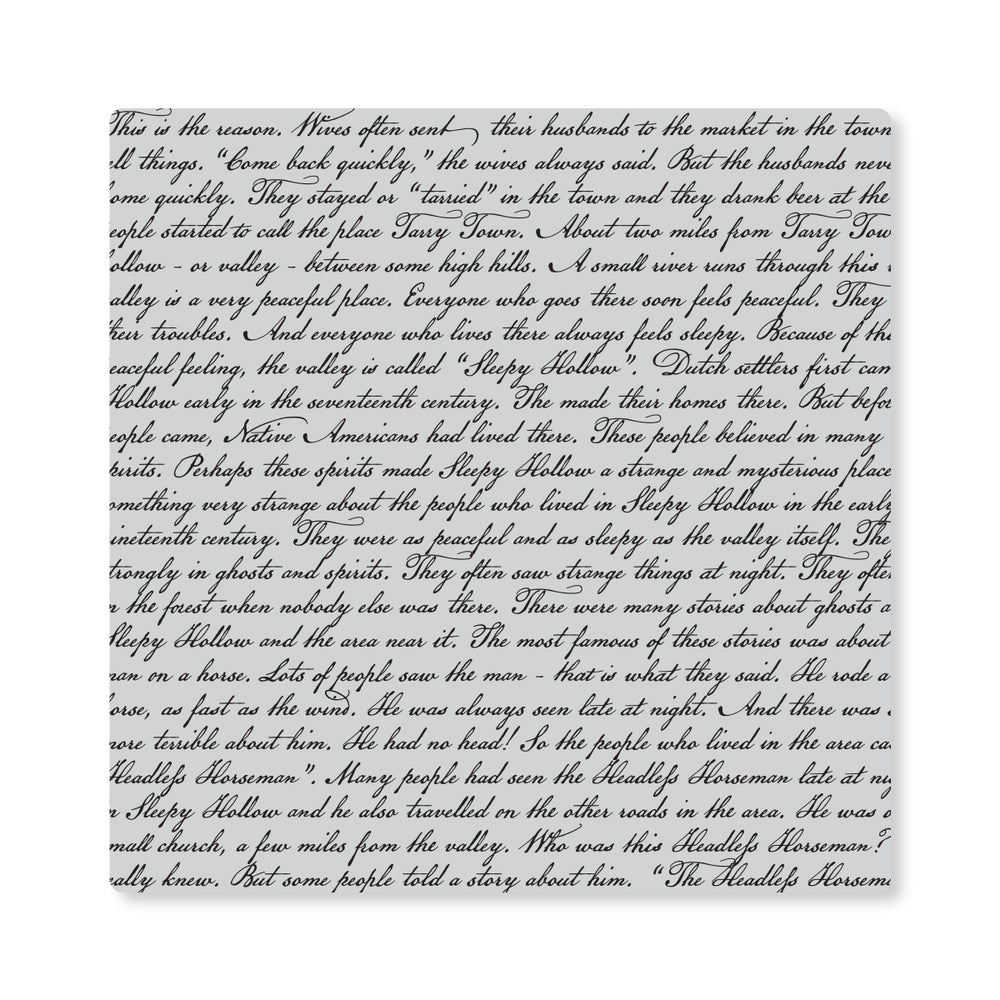 This is the reason. Wives often sent their husbands to the market in the town
ell things. “Come back quickly,” the wives always said. But the husbands neve
ome quickly. They stayed or “tarried” in the town and they drank beer at the
eople started to call the place Tarry Town. About two miles from Tarry Tow
ollow - or valley - between some high hills. A small river runs through this
alley is a very peaceful place. Everyone who goes there soon feels peaceful. They
heir troubles. And everyone who lives there always feels sleepy. Because of the
eaceful feeling, the valley is called “Sleepy Hollow”. Dutch settlers first cam
Hollow early in the seventeenth century. The made their homes there. But befo
eople came, Native Americans had lived there. These people believed in many
pirits. Perhaps these spirits made Sleepy Hollow a strange and mysterious place
omething very strange about the people who lived in Sleepy Hollow in the early
ineteenth century. They were as peaceful and as sleepy as the valley itself. The
trongly in ghosts and spirits. They often saw strange things at night. They ofte
n the forest when nobody else was there. There were many stories about ghosts a
Sleepy Hollow and the area near it. The most famous of these stories was about
man on a horse. Lots of people saw the man - that is what they said. He rode a
orse, as fast as the wind. He was always seen late at night. And there was
more terrible about him. He had no head! So the people who lived in the area ca
Headleſs Horseman”. Many people had seen the Headleſs Horseman late at ni
n Sleepy Hollow and he also travelled on the other roads in the area. He was
mall church, a few miles from the valley. Who was this Headleſs Horseman?
eally knew. But some people told a story about him. “The Headleſs Horsema